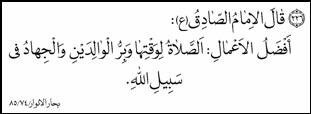 (٢٢٦) قالَ الإمامُ الصّادِقُ (ع):
أَفْضَلُ الأَعْمالِ: اَلصَّلاةُ لِوَقْتِها وَبِرُّ الْوالِدَيْنِ وَالْجِهادُ فى
سَبيلِ اللهِ.
بحار الانوار/٧٤/٨٥